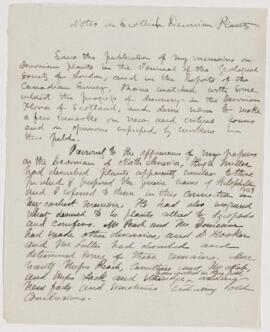 Notes on Scottish Devonian Plants
Since the publication of my memoirs on
Devonian plants in the Journal of the Geological
Society of London, and in the Reports of the
Canadian Survey, I have watched with some
interest the progress of discovery in the Devonian
Flora of Scotland, and desire now to make
a few remarks on new and critical forms
and on opinions expressed by workers in
this field.
Previous to the appearance of my papers
on the Devonian of North America, Hugh Miller
had described plants apparently similar to those
for which I proposed the generic name of Psilophyton
and I referred to these in this connection in
my earliest memoirs. He had also
what seemed to be plants allied to Lycopods
and conifers. Mr Peach and Mr
had made other discoveries, and Dr Hooker
and Mr Salter had described and
determined some of these remains. More
recently Messrs Peach, Carruthers and
and Messrs Jack and Etheridge
new facts and
conclusions.